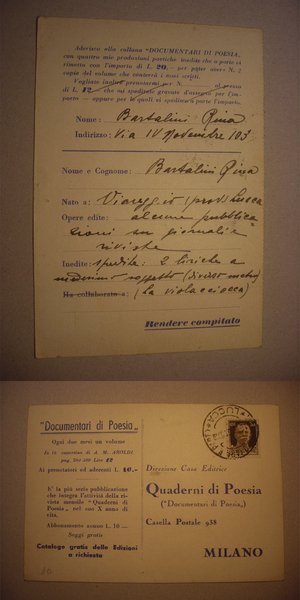 Aderisco alla collana "DOCUMENTARI DI POESIA,
con quattro mie produzioni poetiche inedite che a parte vi
rimetto con l'importo di L. 20.- per poter avere N. 2
copie del volume che conterrà i miei scritti.
Vogliate inoltre prenotarmi per N. al prezzo
di L. 12.- che mi spedirete gravate d'assegno per l'im-
porto — oppure per le quali vi spedisco a parte l'importo.
Nome: Bartalini Rina
Indirizzo: Via IV Novembre 103
Nome e Cognome: Bartalini Rina
Nato a: Viareggio (prov. Lucca
Opere edite: alcune pubblica
zioni su giornali e
riviste
Inedite: spedite: 2 liriche a
medesimo soggetto (diverso metro)
Ha collaborato a: (La violacciocca)
Rendere compilato
"Documentari di Poesia„
Ogni due mesi un volume
In 16 copertine di A. M. AROLDI
pag. 200-300 Lire 12
Ai prenotatori ed aderenti L. 10.-
E' la più seria pubblicazione
che integra l'attività della ri-
vista mensile "Quaderni di
Poesia„ nel suo X anno di
vita.
Abbonamento annuo L. 10 —
Saggi gratis
Catalogo gratis delle Edizioni
a richiesta
Direzione Casa Editrice
Quaderni di Poesia
("Documentari di Poesia„)
Casella Postale 938
MILANO